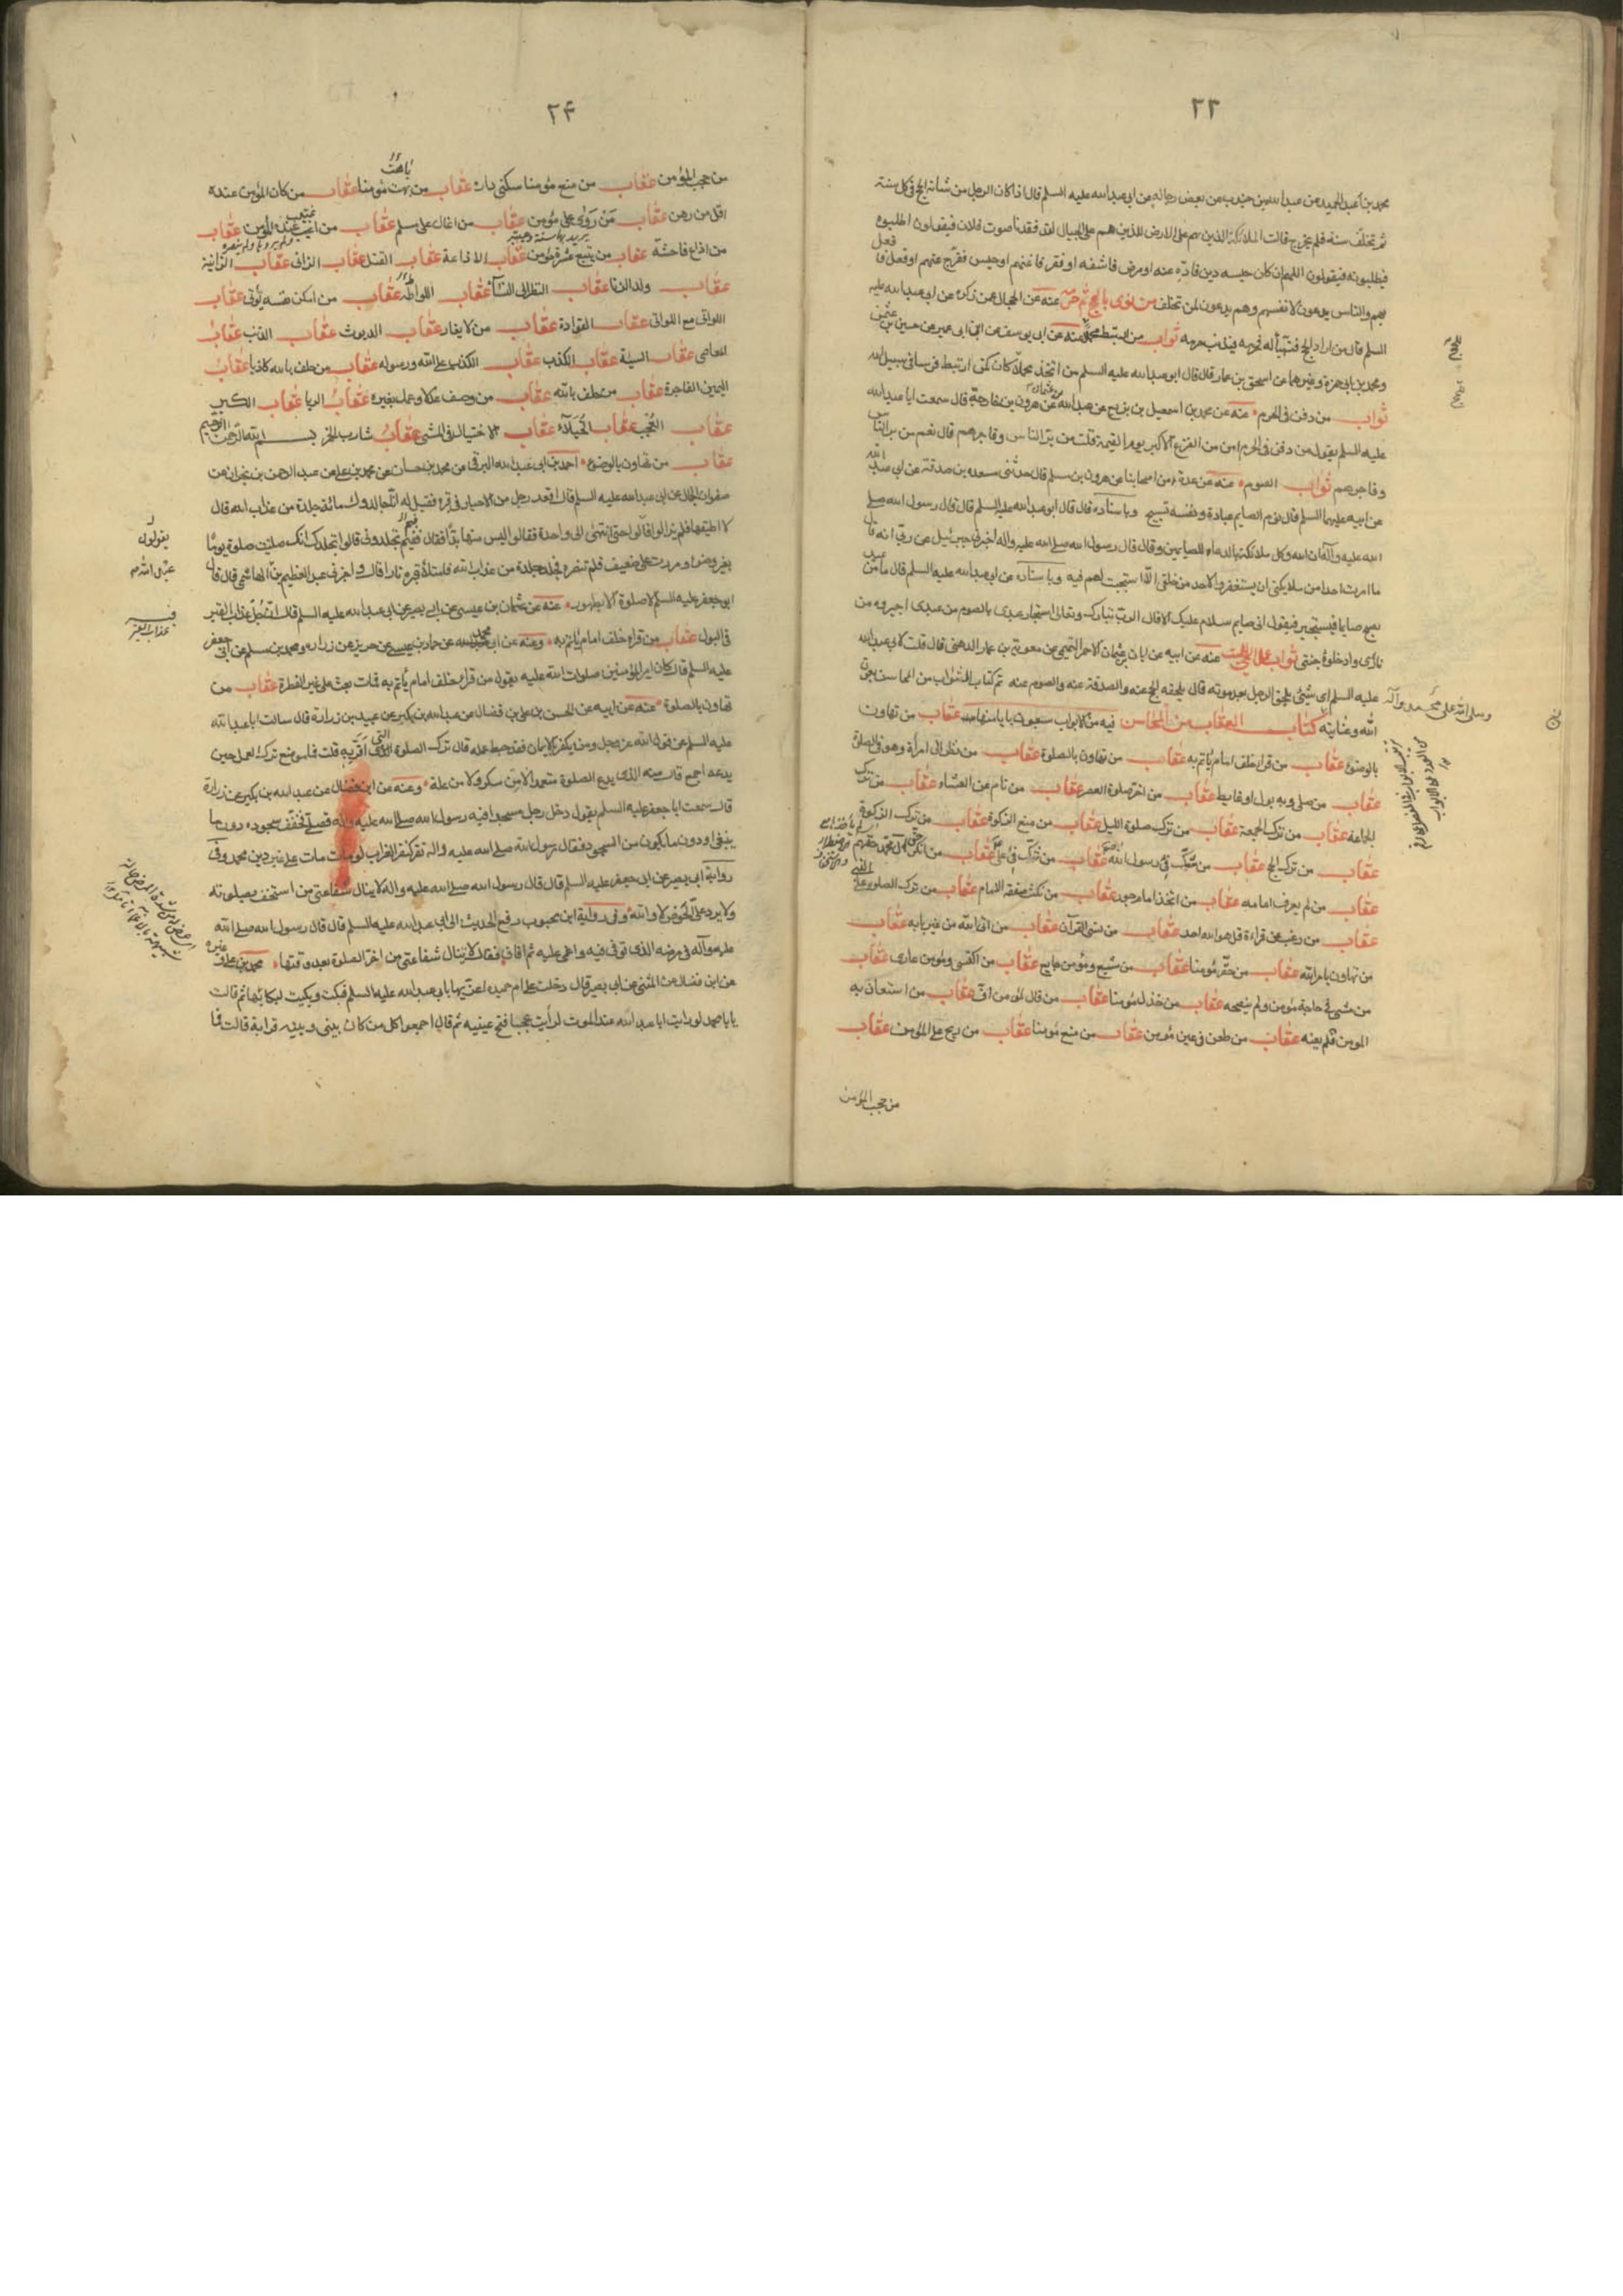 ٢٣
محمد بن عبد الحميد عن عبد الله بن جندب عن بعض رجاله عن ابى عبد الله عليه السلم قال اذا كان الرجل من شانه الحج فى كل سنة
ثم تخلف سنة فلم يخرج قالت الملائكة الذين هم على الارض للذين هم على الجبال لقد فقدنا صوت فلان فيقولون اطلبوه
فيطلبونه فيقولون اللهم ان كان حبسه دين فادّه عنه او مرض فاشفه او فقر فاغنهم او حبس ففرج عنهم او فعل فافعل
بهم والناس يدعون لانفسهم وهم يدعون لمن تخلف من نوى بالحج ثم حرم عنه عن الحجال عمن ذكره عن ابى عبد الله عليه
السلم قال من اراد الحج فتهيأ له فحرمه فبذنب حرمه ثواب من ارتبط محملا عنه عن ابى يوسف عن ابن ابى عمير عن حسين بن عثمن
ومحمد بن ابى حمزة وغيرهما عن اسحق بن عمار قال قال ابو عبد الله عليه السلم من اتخذ محملا كان كمن ارتبط فرسا فى سبيل الله
ثواب من دفن فى الحرم عنه عن محمد بن اسمعيل بن بزيع عن عبد الله بن عثمان عن هرون بن خارجة قال سمعت ابا عبد الله
عليه السلم يقول من دفن فى الحرم امن من الفزع الاكبر يوم القيمة قلت من بر الناس وفاجرهم قال نعم من بر الناس
وفاجرهم ثواب الصوم عنه عن عدة من اصحابنا عن هرون بن مسلم قال حدثنى مسعده بن صدقة عن ابى عبد الله
عن ابيه عليهما السلم قال نوم الصايم عبادة ونفسه تسبيح وباسناده قال قال ابو عبد الله عليه السلم قال قال رسول الله صلى
الله عليه وآله ان الله وكل ملائكة بالدعاء للصايمين وقال قال رسول الله صلى الله عليه واله اخبرنى جبرئيل عن ربى انه قال
ما امرت احدا من ملايكتى ان يستغفروا لاحد من خلقى الا استجبت لهم فيه وباسناده عن ابى عبد الله عليه السلم قال ما من عبد
يصبح صايما فيستجير فيقول انى صايم سلام عليك الا قال الرب تبارك وتعالى استجار عبدى بالصوم من عبدى اجيروه من
نارى وادخلوه جنتى ثواب عمل الحى للميت عنه عن ابيه عن ابان بن عثمان الاحمر التميمى عن معوية بن عمار الدهنى قال قلت لابى عبد الله
عليه السلم اى شىء يلحق الرجل بعد موته قال يلحقه الحج عنه والصدقة عنه والصوم عنه تم كتاب الثواب من المحاسن بعون
الله وعنايته كتاب العقاب من المحاسن فيه من الابواب سبعون بابا منها عقاب من تهاون
وصلى الله على محمد وآله
بالوضوء عقاب من قرا خلف امام ياتم به عقاب من تهاون بالصلوة عقاب من نظر الى امرأة وهو فى الصلوة
عقاب من صلى وبه بول او غايط عقاب من اخر صلوة العصر عقاب من نام عن العشاء عقاب من ترك
الجماعة عقاب من ترك الجمعة عقاب من ترك صلوة الليل عقاب من منع الزكوة عقاب من ترك الزكوة
عقاب من ترك الحج عقاب من شك فى رسول الله عقاب من شك فى على عقاب من انكر آل محمد حقهم
عقاب من لم يعرف امامه عقاب من اتخذ امام جور عقاب من نكث صفقة الامام عقاب من ترك الصلوة على النبى
عقاب من رغب عن قراءة قل هو الله احد عقاب من نسى القرآن عقاب من اتى الله من غير بابه عقاب
من تهاون بامر الله عقاب من حقر مؤمنا عقاب من شبع ومؤمن جايع عقاب من اكتسى ومؤمن عارى عقاب
من مشى فى حاجة مؤمن ولم ينصحه عقاب من خذل مؤمنا عقاب من قال لمؤمن اف عقاب من استعان به
المؤمن فلم يعنه عقاب من طعن فى عين مؤمن عقاب من منع مؤمنا عقاب من ربح على المؤمن عقاب
من حجب المؤمن
٢۴
من حجب المؤمن عقاب من منع مؤمنا سكنى داره عقاب من بهت مؤمنا عقاب من كان المؤمن عنده
اقل من رهن عقاب من روى على مؤمن عقاب من اغان على مسلم عقاب من اغتيب عنده المؤمن عقاب
من اذاع فاحشة عقاب من يتبع عثرة مؤمن عقاب الاذاعة عقاب القتل عقاب الزانى عقاب الزانية
عقاب ولد الزنا عقاب النظر الى النسآء عقاب اللواط عقاب من امكن نفسه يؤتى عقاب
اللواتى مع اللواتى عقاب القوادة عقاب من لا يغار عقاب الديوث عقاب الذنب عقاب
المعاصى عقاب السيئة عقاب الكذب عقاب الكذب على الله ورسوله عقاب من حلف بالله كاذبا عقاب
اليمين الفاجرة عقاب من حلف بالله عقاب من وصف عدلا وعمل بغيره عقاب الريا عقاب الكبر
عقاب العجب عقاب الخيلآء عقاب الاختيال فى المشى عقاب شارب الخمر بسم الله الرحمن الرحيم
عقاب من تهاون بالوضوء احمد بن ابى عبد الله البرقى عن محمد بن حسان عن محمد بن على عن عبد الرحمن بن نجران عن
صفوان الجمال عن ابى عبد الله عليه السلم قال اقعد رجل من الاحبار فى قبره فقيل له انا جالدوك مائة جلدة من عذاب الله قال
لا اطيقها فلم يزالوا حتى انتهى الى واحدة فقالوا ليس منها بد فقال ففيم تجلدونى قالوا نجلدك انك صليت صلوة يوما
بغير وضوء ومررت على ضعيف فلم تنصره فجلد جلدة من عذاب الله فامتلأ قبره نارا قال واخبرنى عبد العظيم بن الهاشمى قال قال
ابو جعفر عليه السلم لا صلوة الا بطهور عنه عن عثمان بن عيسى عن ابى بصير عن ابى عبد الله عليه السلم قال ان جل عذاب القبر
فى البول عقاب من قرا خلف امام ياتم به وعنه عن ابى محمد عن حماد بن عيسى عن حريز عن زراره ومحمد بن مسلم عن ابى جعفر
عليه السلم قال كان امير المؤمنين صلوات الله عليه يقول من قرا خلف امام ياتم به فمات بعث على غير الفطرة عقاب من
تهاون بالصلوة عنه عن ابيه عن الحسن بن على بن فضال عن عبد الله بن بكير عن عبيد بن زرارة قال سالت ابا عبد الله
عليه السلم عن قول الله عز وجل ومن يكفر بالايمان فقد حبط عمله قال ترك الصلوة الذى اقر به قلت فما موضع ترك العمل حين
يدعه اجمع قال منه الذى يدع الصلوة متعمدا لا من سكر ولا من علة وعنه عن ابن فضال عن عبد الله بن بكير عن زرارة
قال سمعت ابا جعفر عليه السلم يقول دخل رجل مسجدا فيه رسول الله صلى الله عليه واله فصلى فخفف سجوده دون ما
ينبغى ودون ما يكون من السجود فقال رسول الله صلى الله عليه واله نقر كنقر الغراب لو مات مات على غير دين محمد وفى
رواية ابى بصير عن ابى جعفر عليه السلم قال قال رسول الله صلى الله عليه واله لا ينال شفاعتى من استخف بصلوته
ولا يرد على الحوض لا والله وفى رواية ابن محبوب رفع الحديث الى ابى عبد الله عليه السلم قال قال رسول الله صلى الله
عليه وآله فى مرضه الذى توفى فيه واغمى عليه ثم افاق فقال لا ينال شفاعتى من اخر الصلوة بعد وقتها محمد بن على وغيره
عن ابن فضال عن المثنى عن ابى بصير قال دخلت على ام حميده اعزيها بابى عبد الله عليه السلم فبكت وبكيت لبكائها ثم قالت
يا با محمد لو رايت ابا عبد الله عند الموت لرأيت عجبا فتح عينيه ثم قال اجمعوا كل من كان بينى وبينه قرابة قالت فما